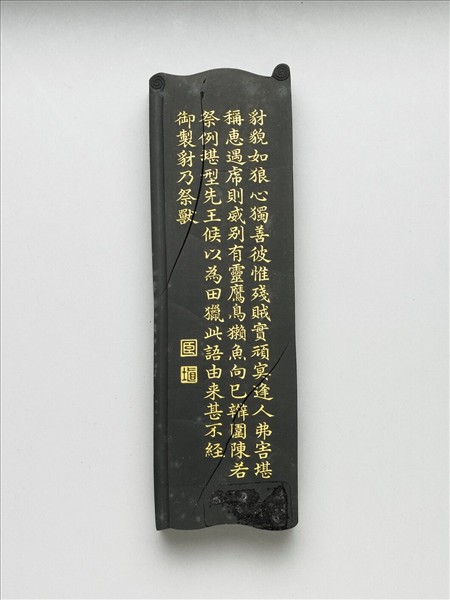 豺貌如狼心獨善彼惟殘賊實頑冥逢人弗害堪
稱恵遇虎則威别有靈鷹鳥獺魚向已辨圍陳若
祭例堪型先王候以為田獵此語由来甚不経
御製豺乃祭獸
臣